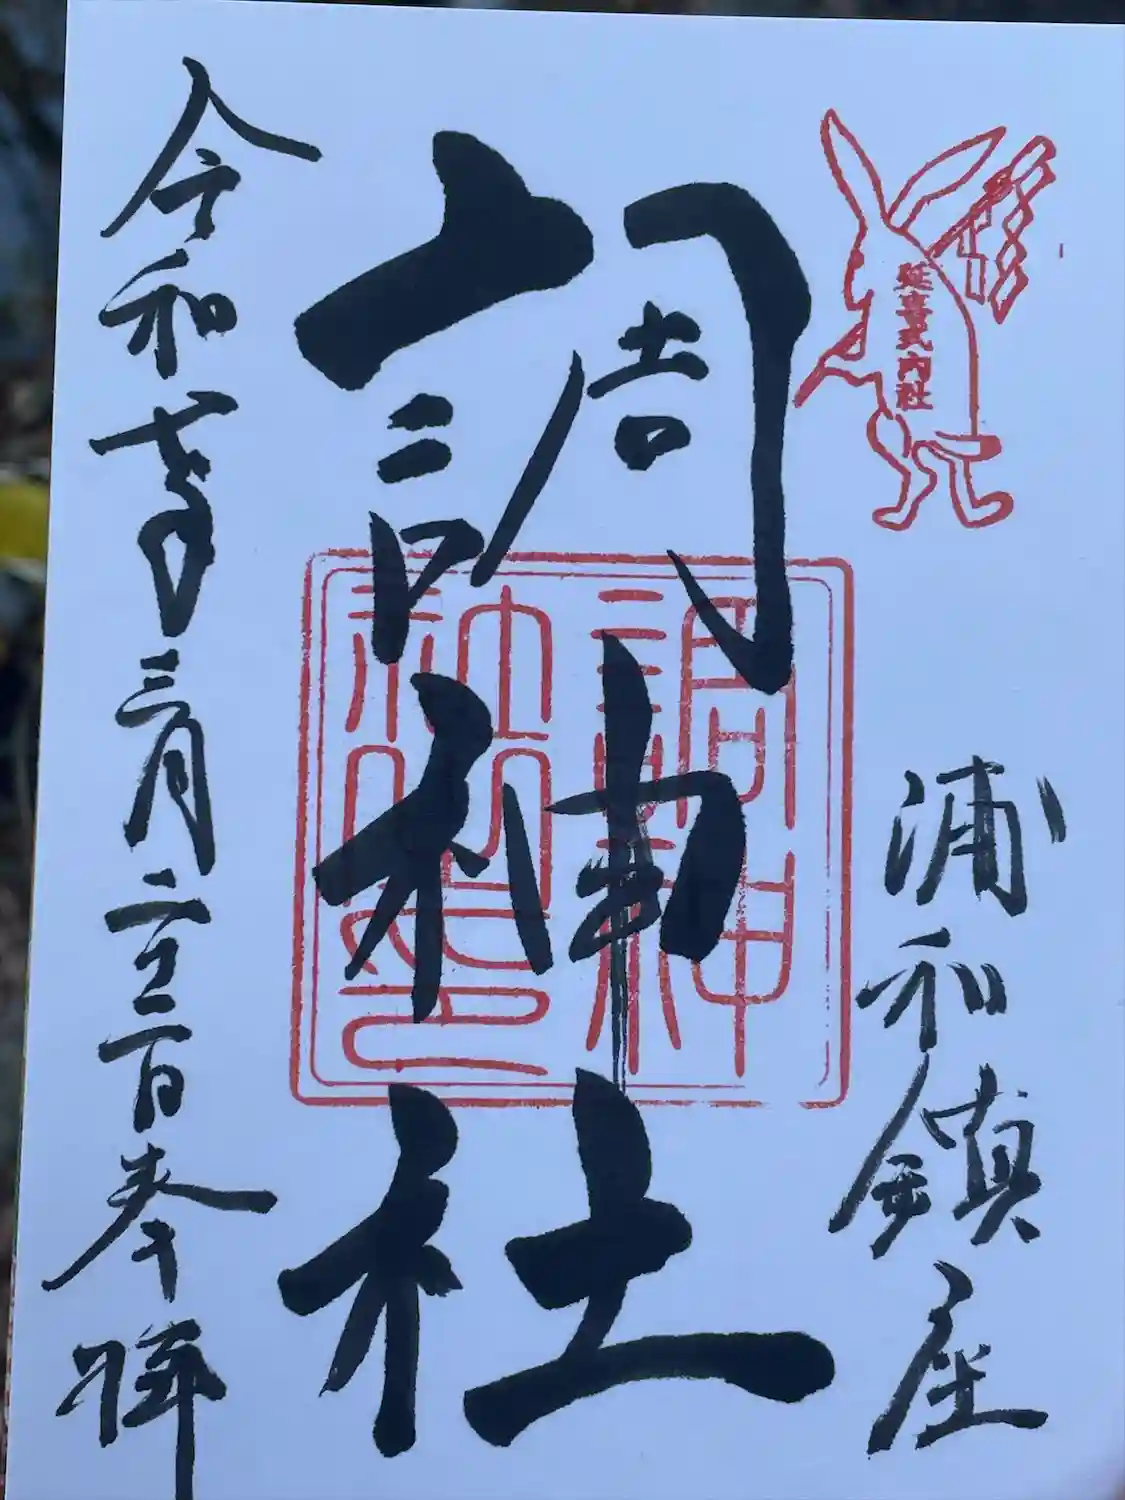 延喜式内社
浦和鎮座
調神社
調神社印
令和 年三月 日奉拝